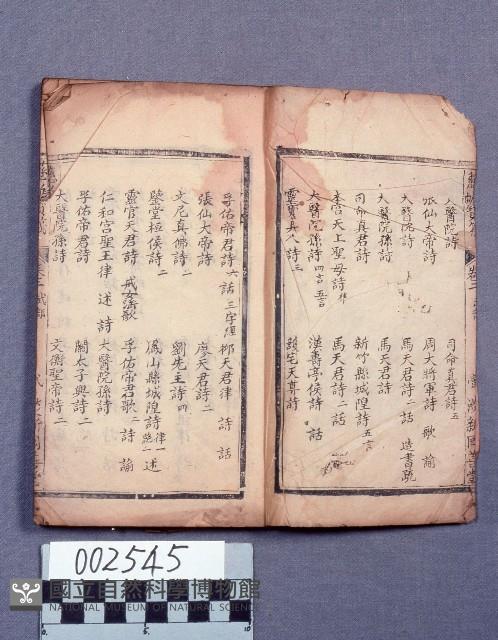 大醫院詩
司命真君詩五
張仙大帝詩
周大將軍詩 歌 諭
大醫院詩
馬天君詩 話 造書疏
大醫院詩
馬天君詩
司命真君詩
新竹縣城隍詩 五言
李宫天上聖母詩
馬天君詩二 話
大醫院孫詩 四言 五言
漢壽亭侯詩 話
靈寶真人詩三
孚佑帝君詩六 話 三字經
柳天君律 詩 話
張仙大帝詩
廖天君詩二
文尼真佛詩二
劉先主詩四
鑒堂桓侯詩二
鳳山縣城隍詩 律一 絶二 述
靈官天君詩二 戒女溺歌
孚佑帝君歌二 詩 諭
仁和宫聖王律 述 詩
大醫院孫詩
孚佑帝君詩
關太子興詩二
大醫院孫詩
文衡聖帝詩二
卷二
002545
0. 5. 10
國立自然科學博物館
NATIONAL MUSEUM OF NATURAL SCIENCE